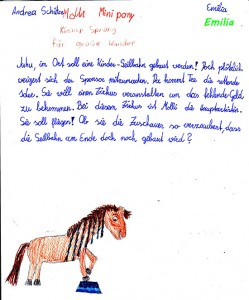 Andrea Schütze Molli Mini pony
Emilia
Emilia
Kleiner Sprung
für große Wunder
Juhu, im Ort soll eine Kinder-Seilbahn gebaut werden! Doch plötzlich
weigert sich der Sponsor mitzumachen. Da kommt Tea die rettende
Idee. Sie will einen Zirkus veranstalten um das fehlende Geld
zu bekommen. Bei diesem Zirkus ist Molli die Hauptdarstellerin.
Sie soll fliegen! Ob sie die Zuschauer so verzaubert, dass
die Seilbahn am Ende doch noch gebaut wird?